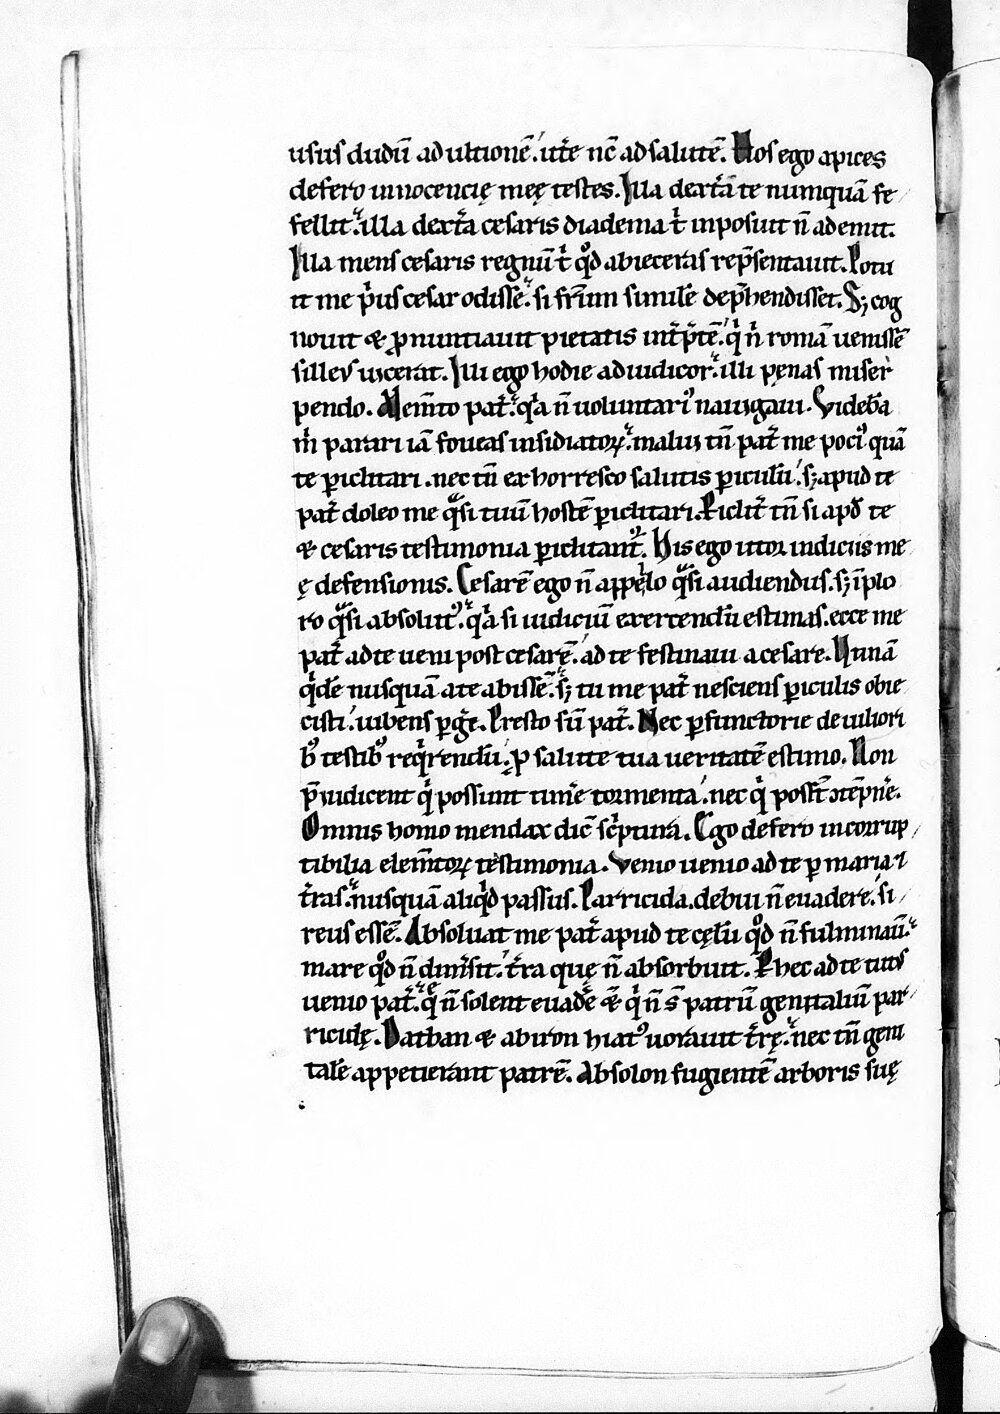 usus dudū ad ultionē. utr̄e nc̄ ad salutē. Hos ego apices
defero innocencię meę testes. Illa dext̄ra te numquā fe
fellit. illa dext̄a cesaris diadema t̄ inposuit n̄ ademit.
Illa mens cesaris regnū t̄ qd̄ abieceras rep̄sentauit. Potu
it me p̄us cesar odissē. si fr̄ium similē dep̄hendisset. Sꝫ cog
nouit & ꝓnuntiauit pietatis int̄p̄tē. q̄ n̄ romā uenissē
si lleus uicerat. Illi ego hodie adiudicor. illi pęnas miser
pendo. Mem̄to pat̄. q̄a n̄ uoluntariꝰ nauigaui. Videba
m̄ parari iā foueas insidiatoꝝ. malui tn̄ pat̄ me pociꝰ quā
te ꝑiclitari. nec tn̄ exhorresco salutis ꝑiculū. sꝫ apud te
pat̄ doleo me q̄si tuū hostē ꝑiclitari. Piclit̄ tn̄ si apd̄ te
& cesaris testimonia ꝑiclitant̄. His ego utor indiciis me
ę defensionis. Cesarē ego n̄ appęlo q̄si audiendus. sꝫ īplo
ro q̄si absolutꝰ. q̄a si iudiciū exercendū estimas. ecce me
pat̄ ad te ueni post cesarē. ad te festinaui a cesare. Utinā
q̄dē nusquā a te abissē. sꝫ tu me pat̄ nesciens ꝑiculis obie
cisti. iubens ꝑḡe. Presto sū pat̄. Nec ꝑfunctorie de uiliori
bꝰ testibꝰ req̄rendū. ꝓ salute tua ueritatē estimo. Non
p̄iudicent q̄ possunt tim̄e tormenta. nec q̄ poss̄t ꝯtēpn̄e.
Omnis homo mendax dic̄ sc̄ptura. Ego defero incorrup
tibilia elem̄toꝝ testimonia. Venio uenio ad te ꝑ maria ⁊
t̄ras. nusquā aliq̄d passus. Parricida. debui n̄ euadere. si
reus essē. Absoluat me pat̄ apud te cęlū qd̄ n̄ fulminauit.
mare qd̄ n̄ dim̄sit. t̄ra que n̄ absorbuit. P hec ad te tutus
uenio pat̄. q̄ n̄ solent euadē & q̄ n̄ s̄ patrū genitaliū par
ricidę. Dathan & abiron hiatꝰ uorauit t̄rę. nec tn̄ geni
talē appetierant patrē. Absolon fugientē arboris suę